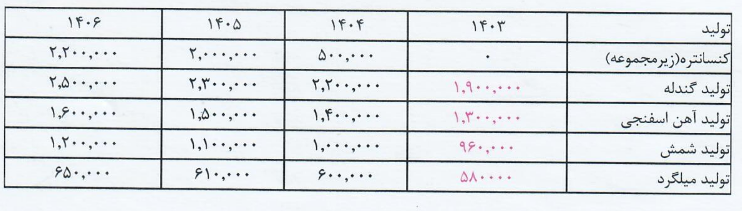 تولید ۱۴۰۳ ۱۴۰۴ ۱۴۰۵ ۱۴۰۶
کنسانتره(زیرمجموعه) ۰ ۵۰۰,۰۰۰ ۲,۰۰۰,۰۰۰ ۲,۲۰۰,۰۰۰
تولید گندله ۱,۹۰۰,۰۰۰ ۲,۲۰۰,۰۰۰ ۲,۳۰۰,۰۰۰ ۲,۵۰۰,۰۰۰
تولید آهن اسفنجی ۱,۳۰۰,۰۰۰ ۱,۴۰۰,۰۰۰ ۱,۵۰۰,۰۰۰ ۱,۶۰۰,۰۰۰
تولید شمش ۹۶۰,۰۰۰ ۱,۰۰۰,۰۰۰ ۱,۱۰۰,۰۰۰ ۱,۲۰۰,۰۰۰
تولید میلگرد ۵۸۰۰۰۰ ۶۰۰,۰۰۰ ۶۱۰,۰۰۰ ۶۵۰,۰۰۰